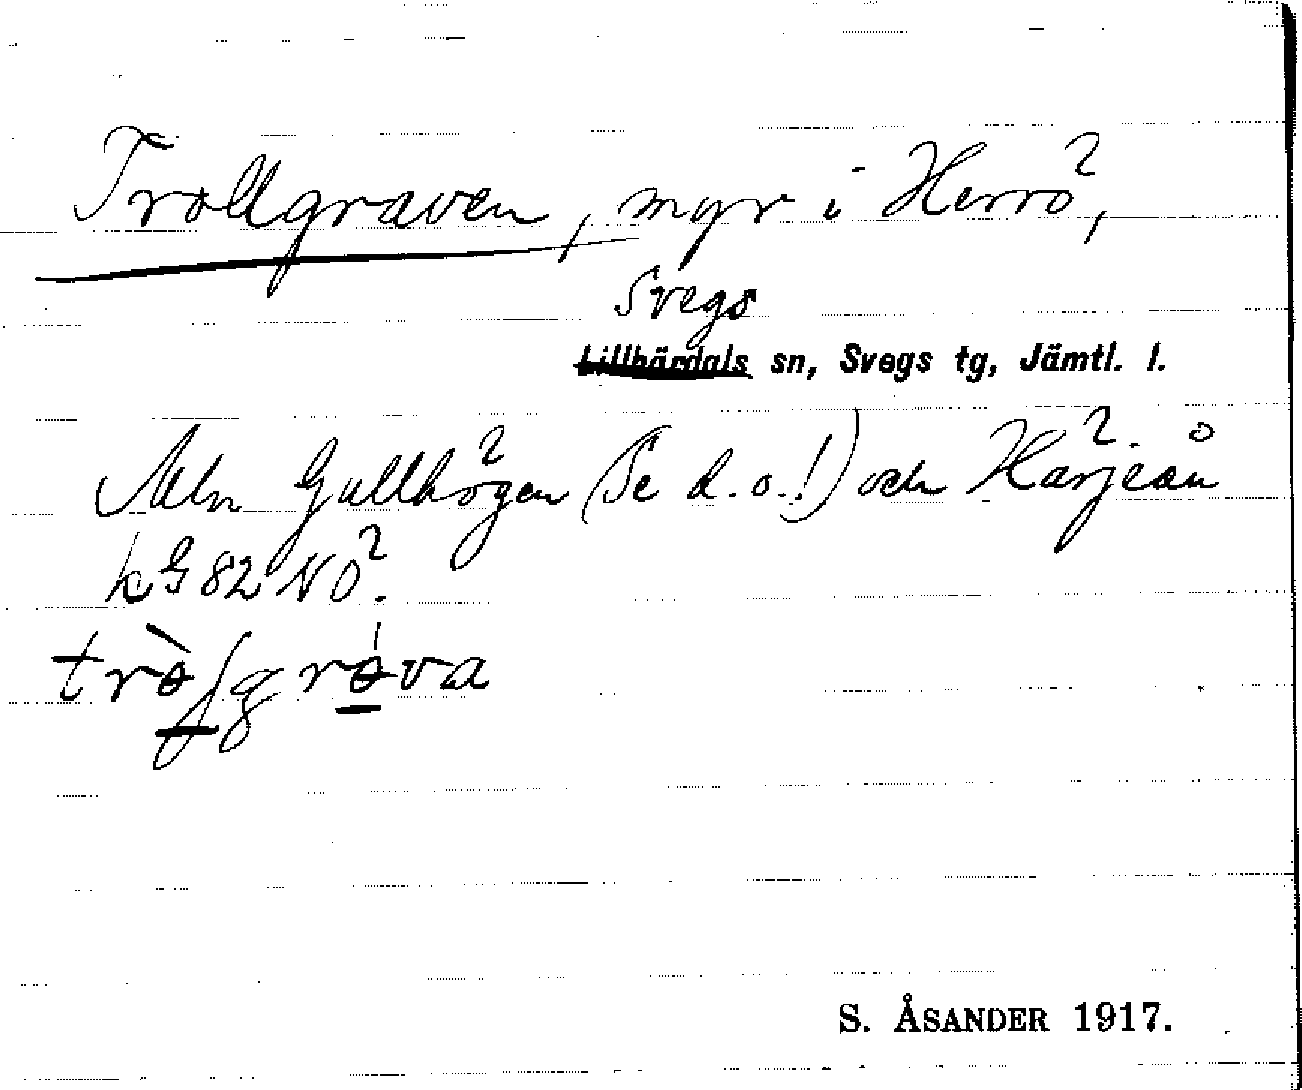 Trollgraven, myr i Herrö,
Svegs
Lillhärdals sn, Svegs tg, Jämtl. l.
Mln Gullhögen (Se d.o.!) och Härjeån
kG 82 NÖ.
S. ÅSANDER 1917.